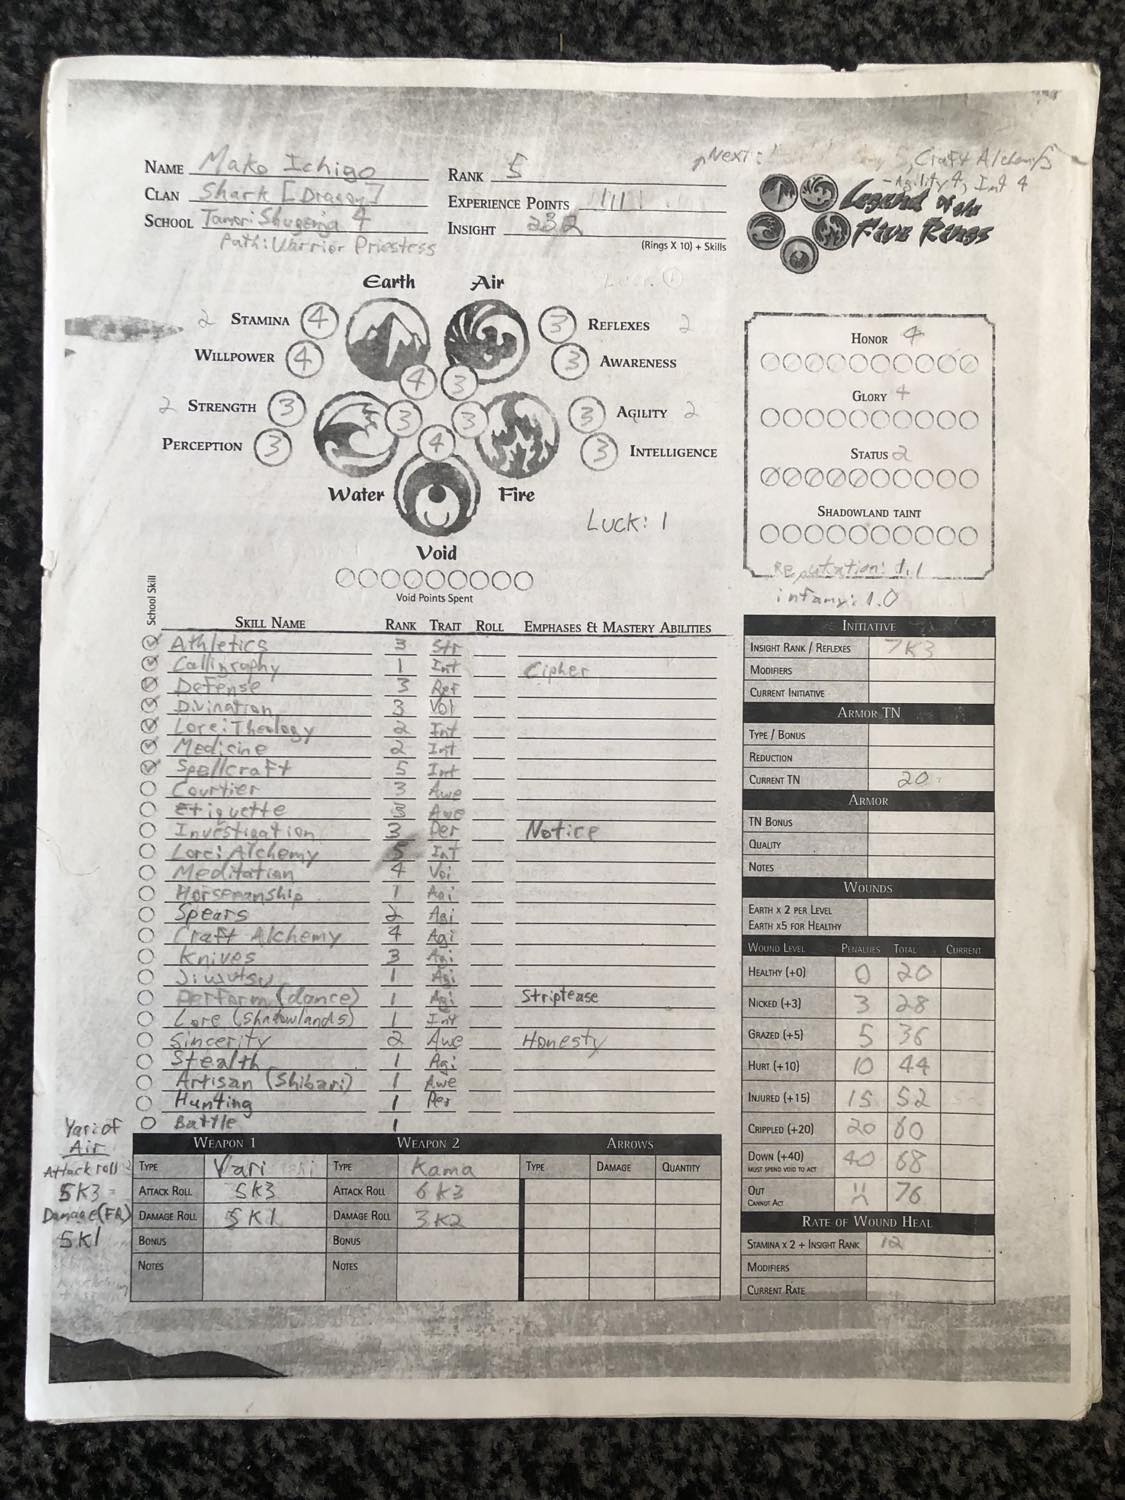 Next: Craft Alchemy 5
- Agility 4, Int 4
NAME Mako Ichigo
RANK 5
CLAN Shark [Dragon]
EXPERIENCE POINTS
SCHOOL Tamori Shugenja 4
INSIGHT 232
Path: Warrior Priestess
(RINGS X 10) + SKILLS
Legend of the
Five Rings
Earth Air
2 STAMINA 4
3 REFLEXES 2
WILLPOWER 4
3 AWARENESS
4 3
2 STRENGTH 3
3 3
3 AGILITY 2
PERCEPTION 3
4
3 INTELLIGENCE
Water Fire
LUCK: 1
Void
Void Points Spent
HONOR 4
GLORY 4
STATUS 2
SHADOWLAND TAINT
Reputation: 1.1
infamy: 1.0
School Skill
SKILL NAME RANK TRAIT ROLL EMPHASES & MASTERY ABILITIES
Athletics 3 Str
Calligraphy 1 Int Cipher
Defense 3 Ref
Divination 3 Voi
Lore: Theology 2 Int
Medicine 2 Int
Spellcraft 5 Int
Courtier 3 Awe
Etiquette 3 Awe
Investigation 3 Per Notice
Lore: Alchemy 5 Int
Meditation 4 Voi
Horsemanship 1 Agi
Spears 2 Agi
Craft Alchemy 4 Agi
Knives 3 Agi
Jiujutsu 1 Agi
Perform (dance) 1 Agi Striptease
Lore (Shadowlands) 1 Int
Sincerity 2 Awe Honesty
Stealth 1 Agi
Artisan (Shibari) 1 Awe
Hunting 1 Per
Battle 1
INITIATIVE
INSIGHT RANK / REFLEXES 7K3
MODIFIERS
CURRENT INITIATIVE
ARMOR TN
TYPE / BONUS
REDUCTION
CURRENT TN 20
ARMOR
TN BONUS
QUALITY
NOTES
WOUNDS
EARTH X 2 PER LEVEL
EARTH X5 FOR HEALTHY
WOUND LEVEL PENALTIES TOTAL CURRENT
HEALTHY (+0) 0 20
NICKED (+3) 3 28
GRAZED (+5) 5 36
HURT (+10) 10 44
INJURED (+15) 15 52
CRIPPLED (+20) 20 60
DOWN (+40) 40 68
MUST SPEND VOID TO ACT
OUT 76
CANNOT ACT
RATE OF WOUND HEAL
STAMINA X 2 + INSIGHT RANK 12
MODIFIERS
CURRENT RATE
Yari of
Air
Attack roll
5K3
Damage (FA)
5K1
WEAPON 1 WEAPON 2 ARROWS
TYPE Yari TYPE Kama TYPE DAMAGE QUANTITY
ATTACK ROLL 5K3 ATTACK ROLL 6K3
DAMAGE ROLL 5K1 DAMAGE ROLL 3K2
BONUS BONUS
NOTES NOTES